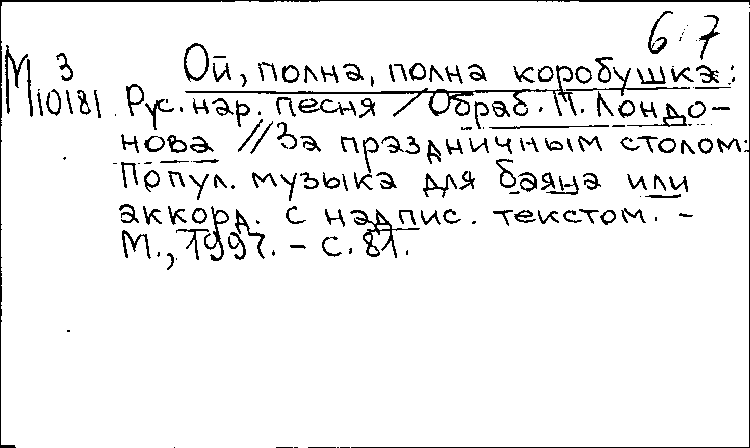 6 7
М 3 Ой, полна, полна коробушка:
10181 Рус. нар. песня / Обраб. П. Лондо-
нова // За праздничным столом:
Попул. музыка для баяна или
аккорд. с надпис. текстом. -
М., 1997. - С. 81.